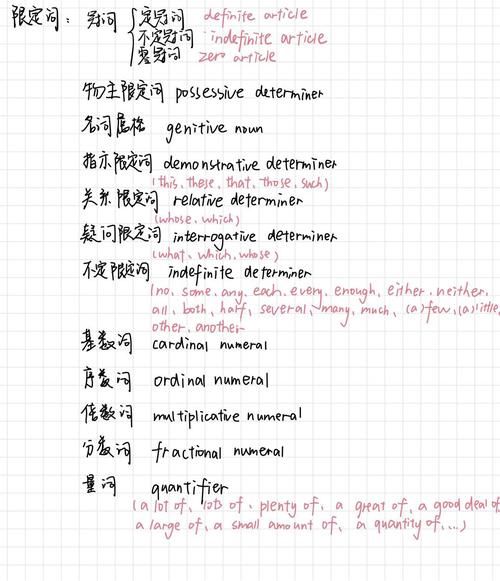 限定词: 冠词 { 定冠词 definite article
不定冠词 indefinite article
零冠词 zero article
物主限定词 possessive determiner
名词属格 genitive noun
指示限定词 demonstrative determiner
(this, these, that, those, such)
关系限定词 relative determiner
(whose, which)
疑问限定词 interrogative determiner
(what, which, whose)
不定限定词 indefinite determiner
(no, some, any, each, every, enough, either, neither,
all, both, half, several, many, much, (a)few, (a)little,
other, another
基数词 cardinal numeral
序数词 ordinal numeral
倍数词 multiplicative numeral
分数词 fractional numeral
量词 quantifier
(a lot of, lots of, plenty of, a great of, a good deal of
a large of, a small amount of, a quantity of,...)